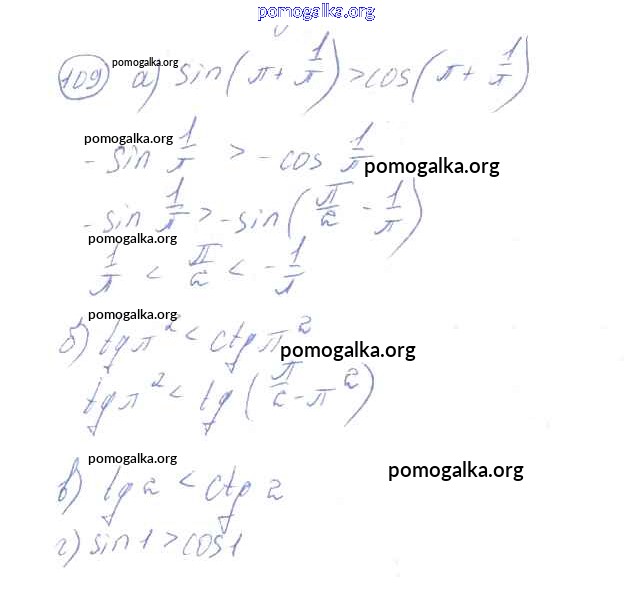 pomogalka.org
109 pomogalka.org а) sin(π + 1/π) > cos(π + 1/π)
pomogalka.org
- sin 1/π > - cos 1/π pomogalka.org
- sin 1/π > - sin(π/2 - 1/π)
pomogalka.org
1/π < π/2 < - 1/π
pomogalka.org
б) tg π² < ctg π²
pomogalka.org
tg π² < tg(π/2 - π²)
pomogalka.org
pomogalka.org
в) tg 2 < ctg 2
г) sin 1 > cos 1